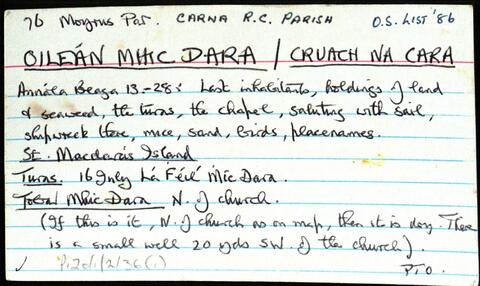 76 Moyrus Par. CARNA R.C. PARISH O.S. LIST '86
OILEÁN MHIC DARA / CRUACH NA CARA
Annála Beaga 13-28: Last inhabitants, holdings of land
& seaweed, the turas, the chapel, saluting with sail,
shipwreck there, mice, sand, birds, placenames.
St. Macdara's Island
Turas. 16 July Lá Féil Mic Dara.
Tobar Mhic Dara N. of church.
(If this is it, N. of church as on map, then it is dry. There
is a small well 20 yds SW. of the church).
P120/1/2/36(1) PTO.